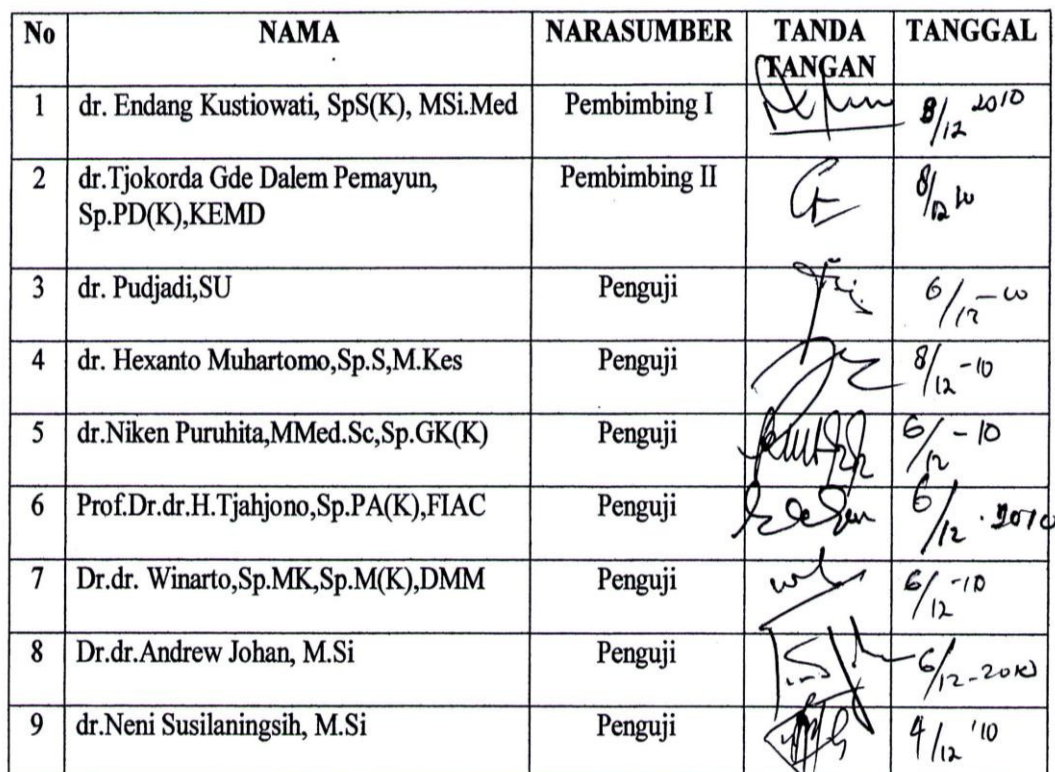 No NAMA NARASUMBER TANDA TANGAN TANGGAL
1 dr. Endang Kustiowati, SpS(K), MSi.Med Pembimbing I 8/12 2010
2 dr.Tjokorda Gde Dalem Pemayun, Pembimbing II 8/12 10
Sp.PD(K),KEMD
3 dr. Pudjadi,SU Penguji 6/12-10
4 dr. Hexanto Muhartomo,Sp.S,M.Kes Penguji 8/12-10
5 dr.Niken Puruhita,MMed.Sc,Sp.GK(K) Penguji 6/12-10
6 Prof.Dr.dr.H.Tjahjono,Sp.PA(K),FIAC Penguji 6/12.2010
7 Dr.dr. Winarto,Sp.MK,Sp.M(K),DMM Penguji 6/12-10
8 Dr.dr.Andrew Johan, M.Si Penguji 6/12-2010
9 dr.Neni Susilaningsih, M.Si Penguji 4/12 '10